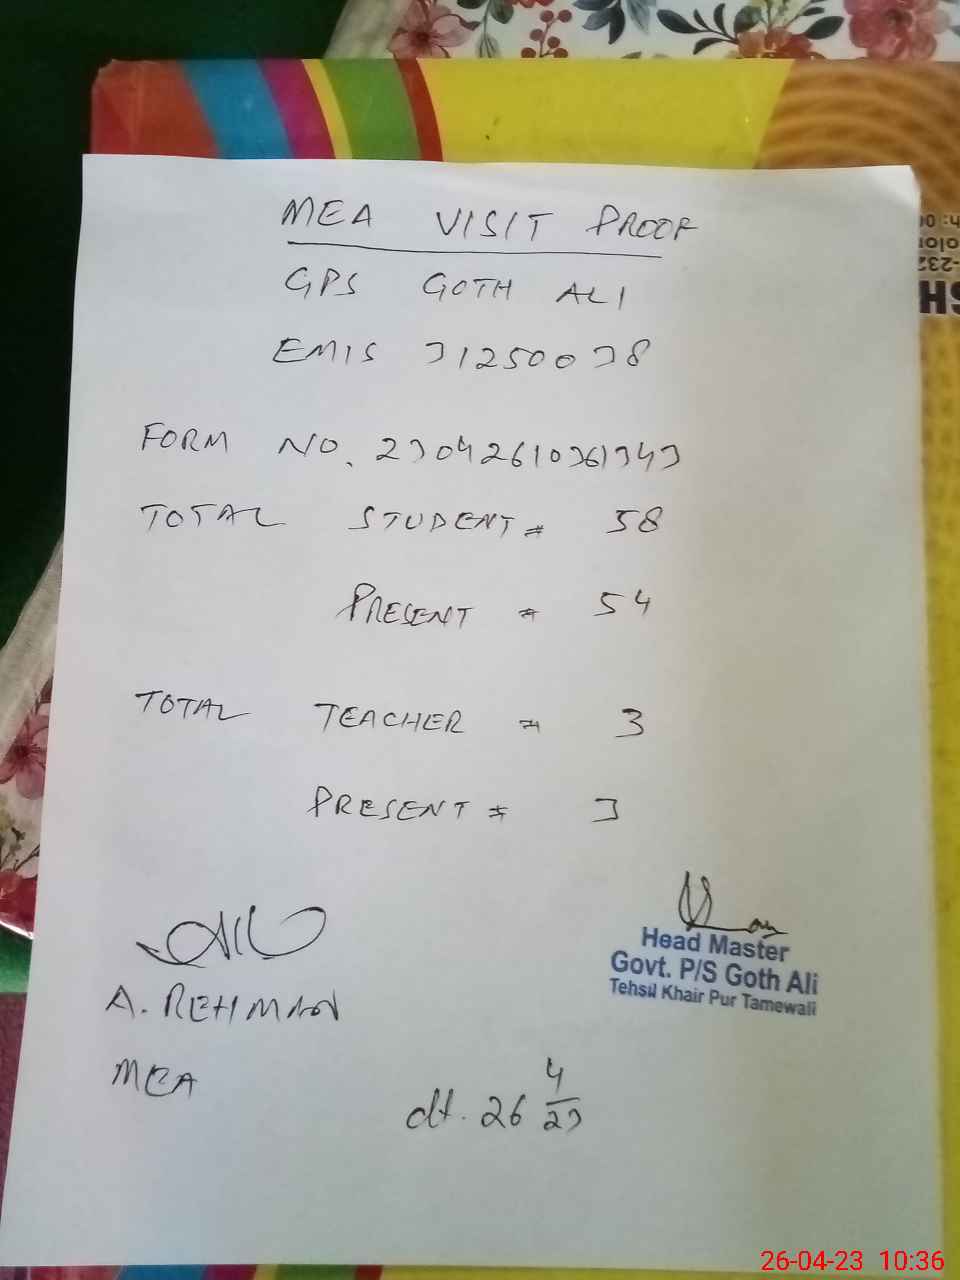 MEA VISIT PROOF
GPS GOTH ALI
EMIS 31250038
FORM NO. 23042610361343
TOTAL STUDENT = 58
PRESENT = 54
TOTAL TEACHER = 3
PRESENT = 3
A. REHMAN
MEA
Head Master
Govt. P/S Goth Ali
Tehsil Khair Pur Tamewali
dt. 26 4/23
26-04-23 10:36